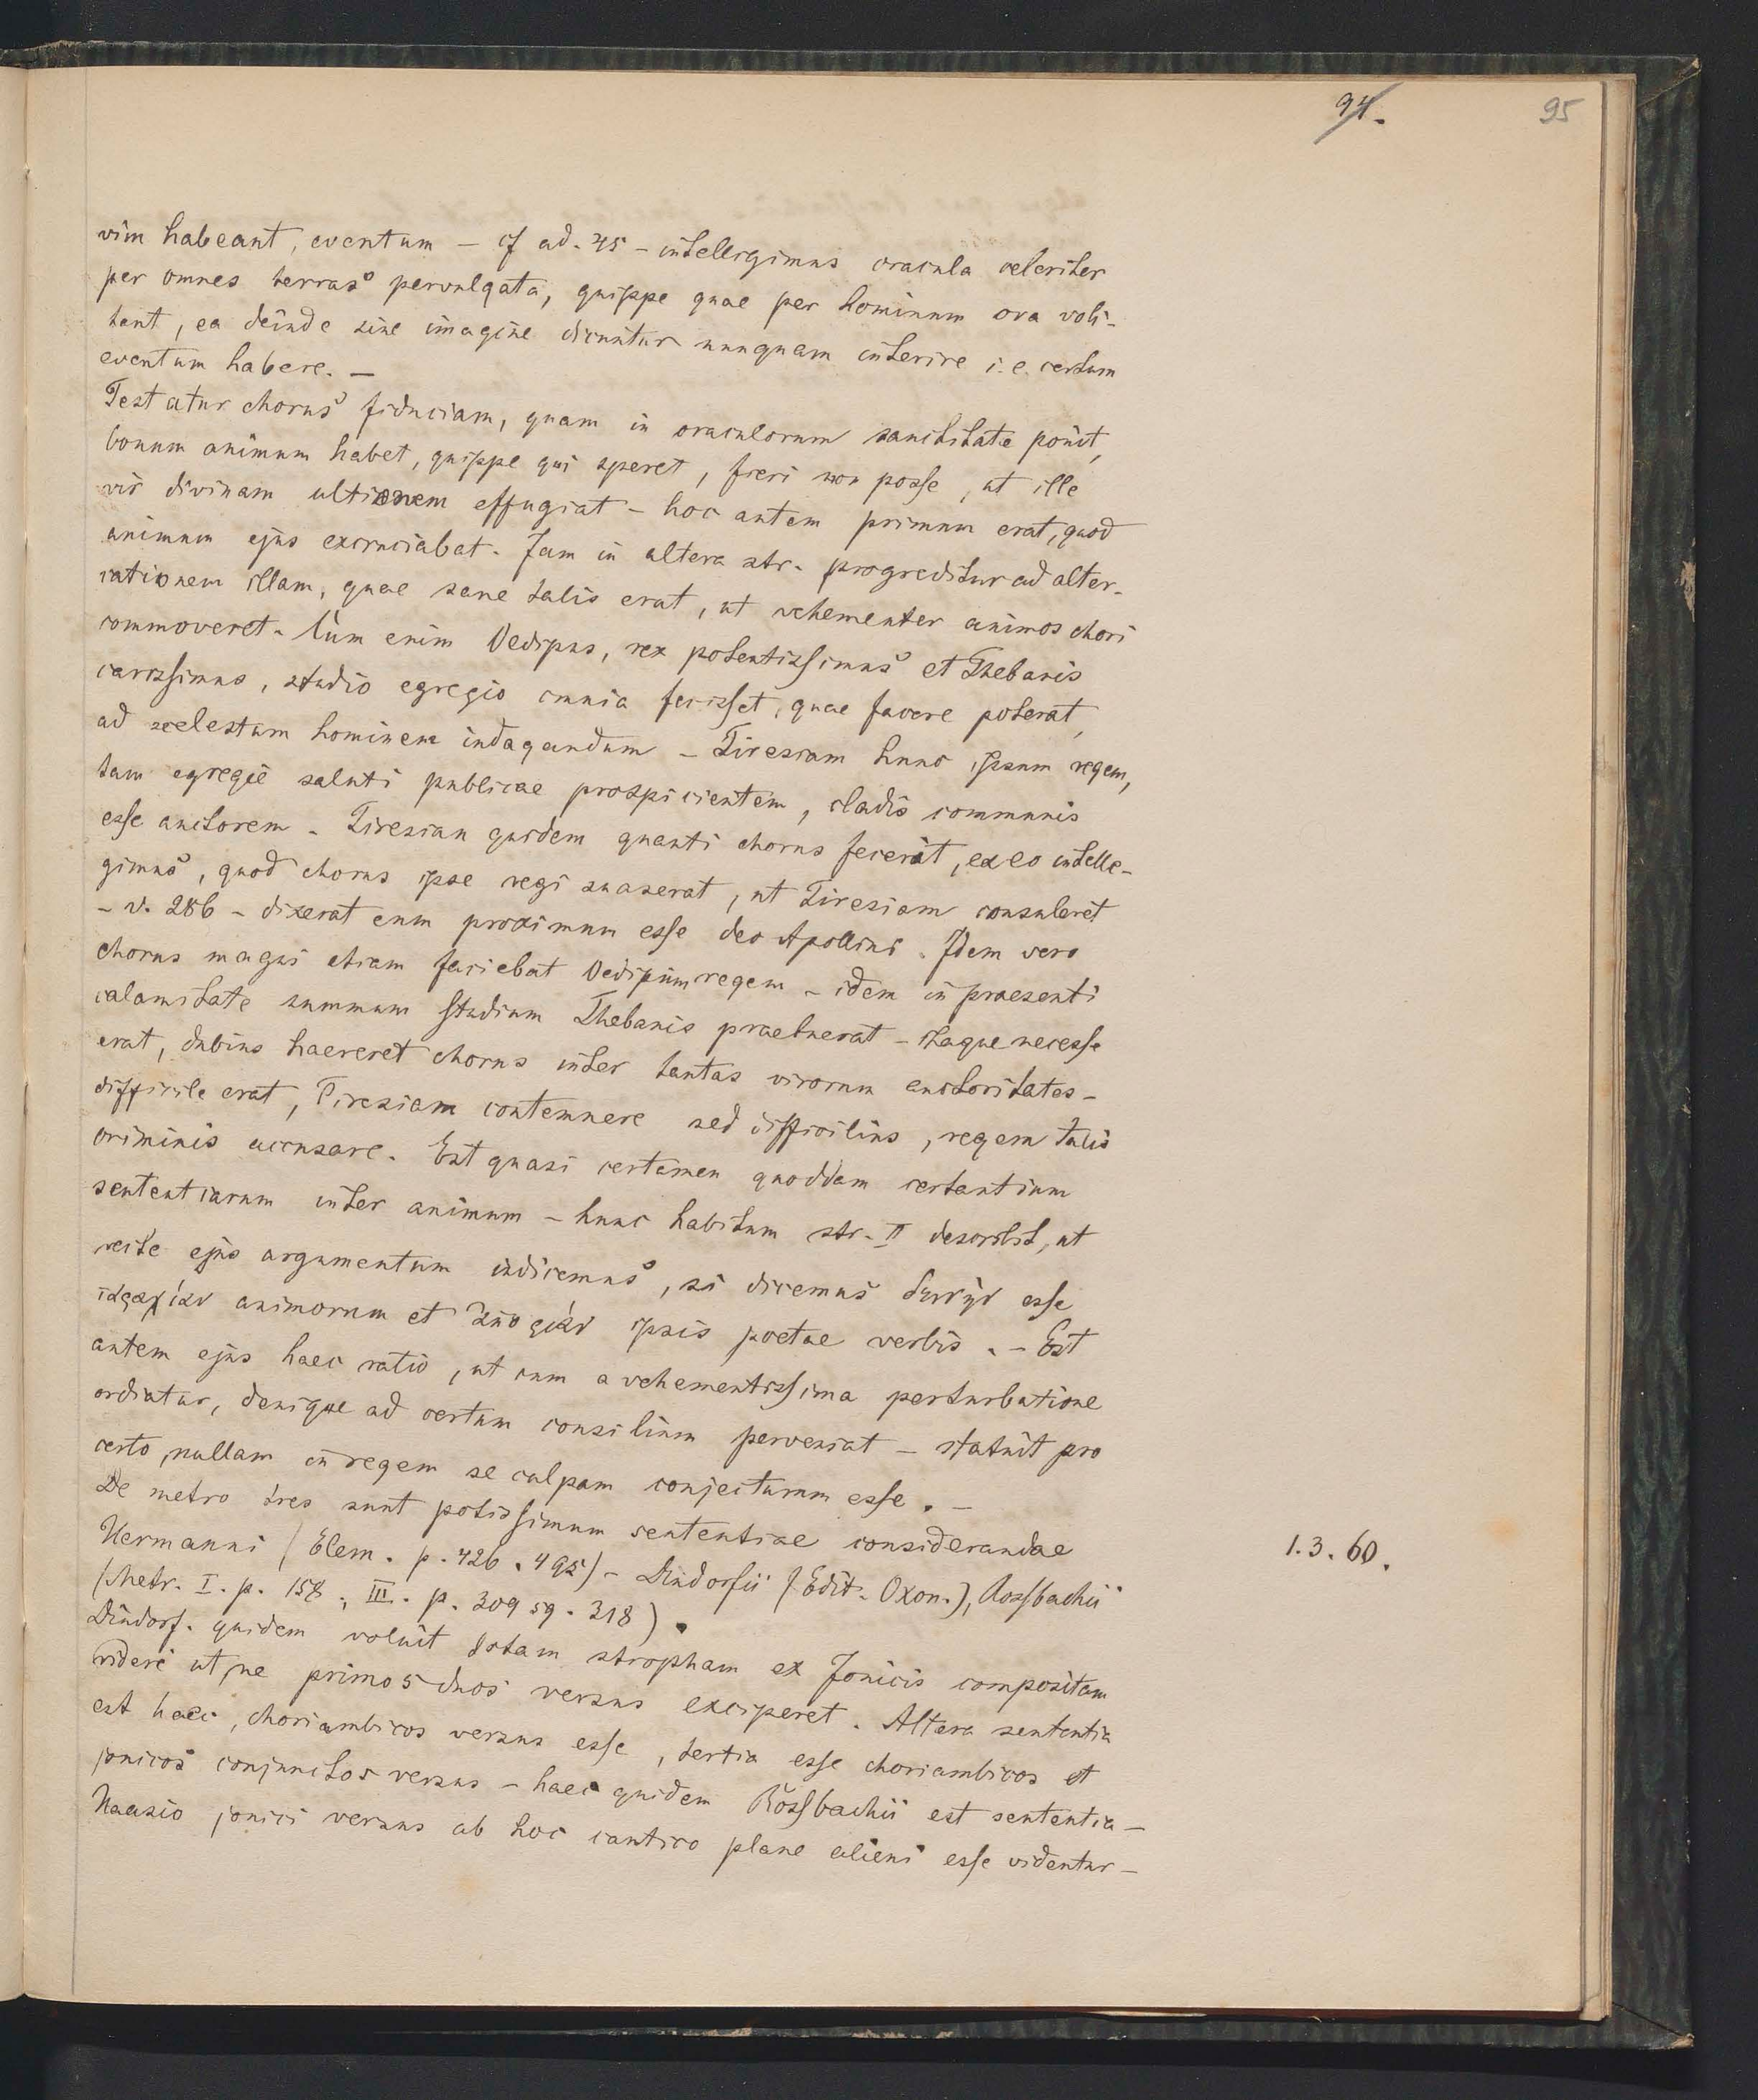 94.
95
vim habeant, eventum – cf ad. 45 – intellegimus oracula celeriter
per omnes terras pervulgata, quippe quae per hominum ora voli-
tent, ea deinde sine imagine dicuntur nunquam interire i. e. certum
eventum habere. –
Testatur chorus fiduciam, quam in oraculorum sanctitate ponit,
bonum animum habet, quippe qui speret, fieri non posse, ut ille
vir divinam ultionem effugiat – hoc autem primum erat, quod
animum ejus excruciabat. Jam in altera str. progreditur ad alter-
cationem illam, quae sane talis erat, ut vehementer animos chori
commoveret. Cum enim Oedipus, rex potentissimus et Thebanis
carissimus, studio egregio omnia fecisset, quae facere poterat,
ad scelestum hominem indagandum – Tiresiam hunc ipsum regem,
tam egregie saluti publicae prospicientem, cladis communis
esse auctorem. Tiresian quidem quanti chorus fecerit, ex eo intelle-
gimus, quod chorus ipse regi suaserat, ut Tiresiam consuleret
– v. 286 – dixerat eum proximum esse deo Apollini. Idem vero
chorus magis etiam faciebat Oedipum regem – idem in praesenti
calamitate summum studium Thebanis praebuerat – itaque necesse
erat, dubius haereret chorus inter tantas virorum auctoritates –
difficile erat, Tiresiam contemnere sed difficilius, regem talis
criminis accusare. Est quasi certamen quoddam certantium
sententiarum inter animum – hunc habitum str. II describit, ut
recte ejus argumentum indicemus, si dicemus esse
animorum et ipsis poetae verbis. – Est
autem ejus haec ratio, ut cum a vehementissima perturbatione
ordiatur, denique ad certum consilium perveniat – statuit pro
certo, nullam in regem se culpam conjecturum esse. –
De metro tres sunt potissimum sententiae considerandae
1. 3. 60.
Hermanni (Elem. p. 426. 495) – Dindorfii (Edit. Oxon.), Rossbachii
(Metr. I. p. 158, III. p. 309 sq. 318).
Dindorf. quidem voluit totam stropham ex Jonicis compositam
videri ut ne primos duos versus exciperet. Altera sententia
est haec, choriambicos versus esse, tertia esse choriambicos et
jonicos conjunctos versus – haec quidem Rossbachii est sententia –
jonici versus ab hoc cantico plane alieni esse videntur –